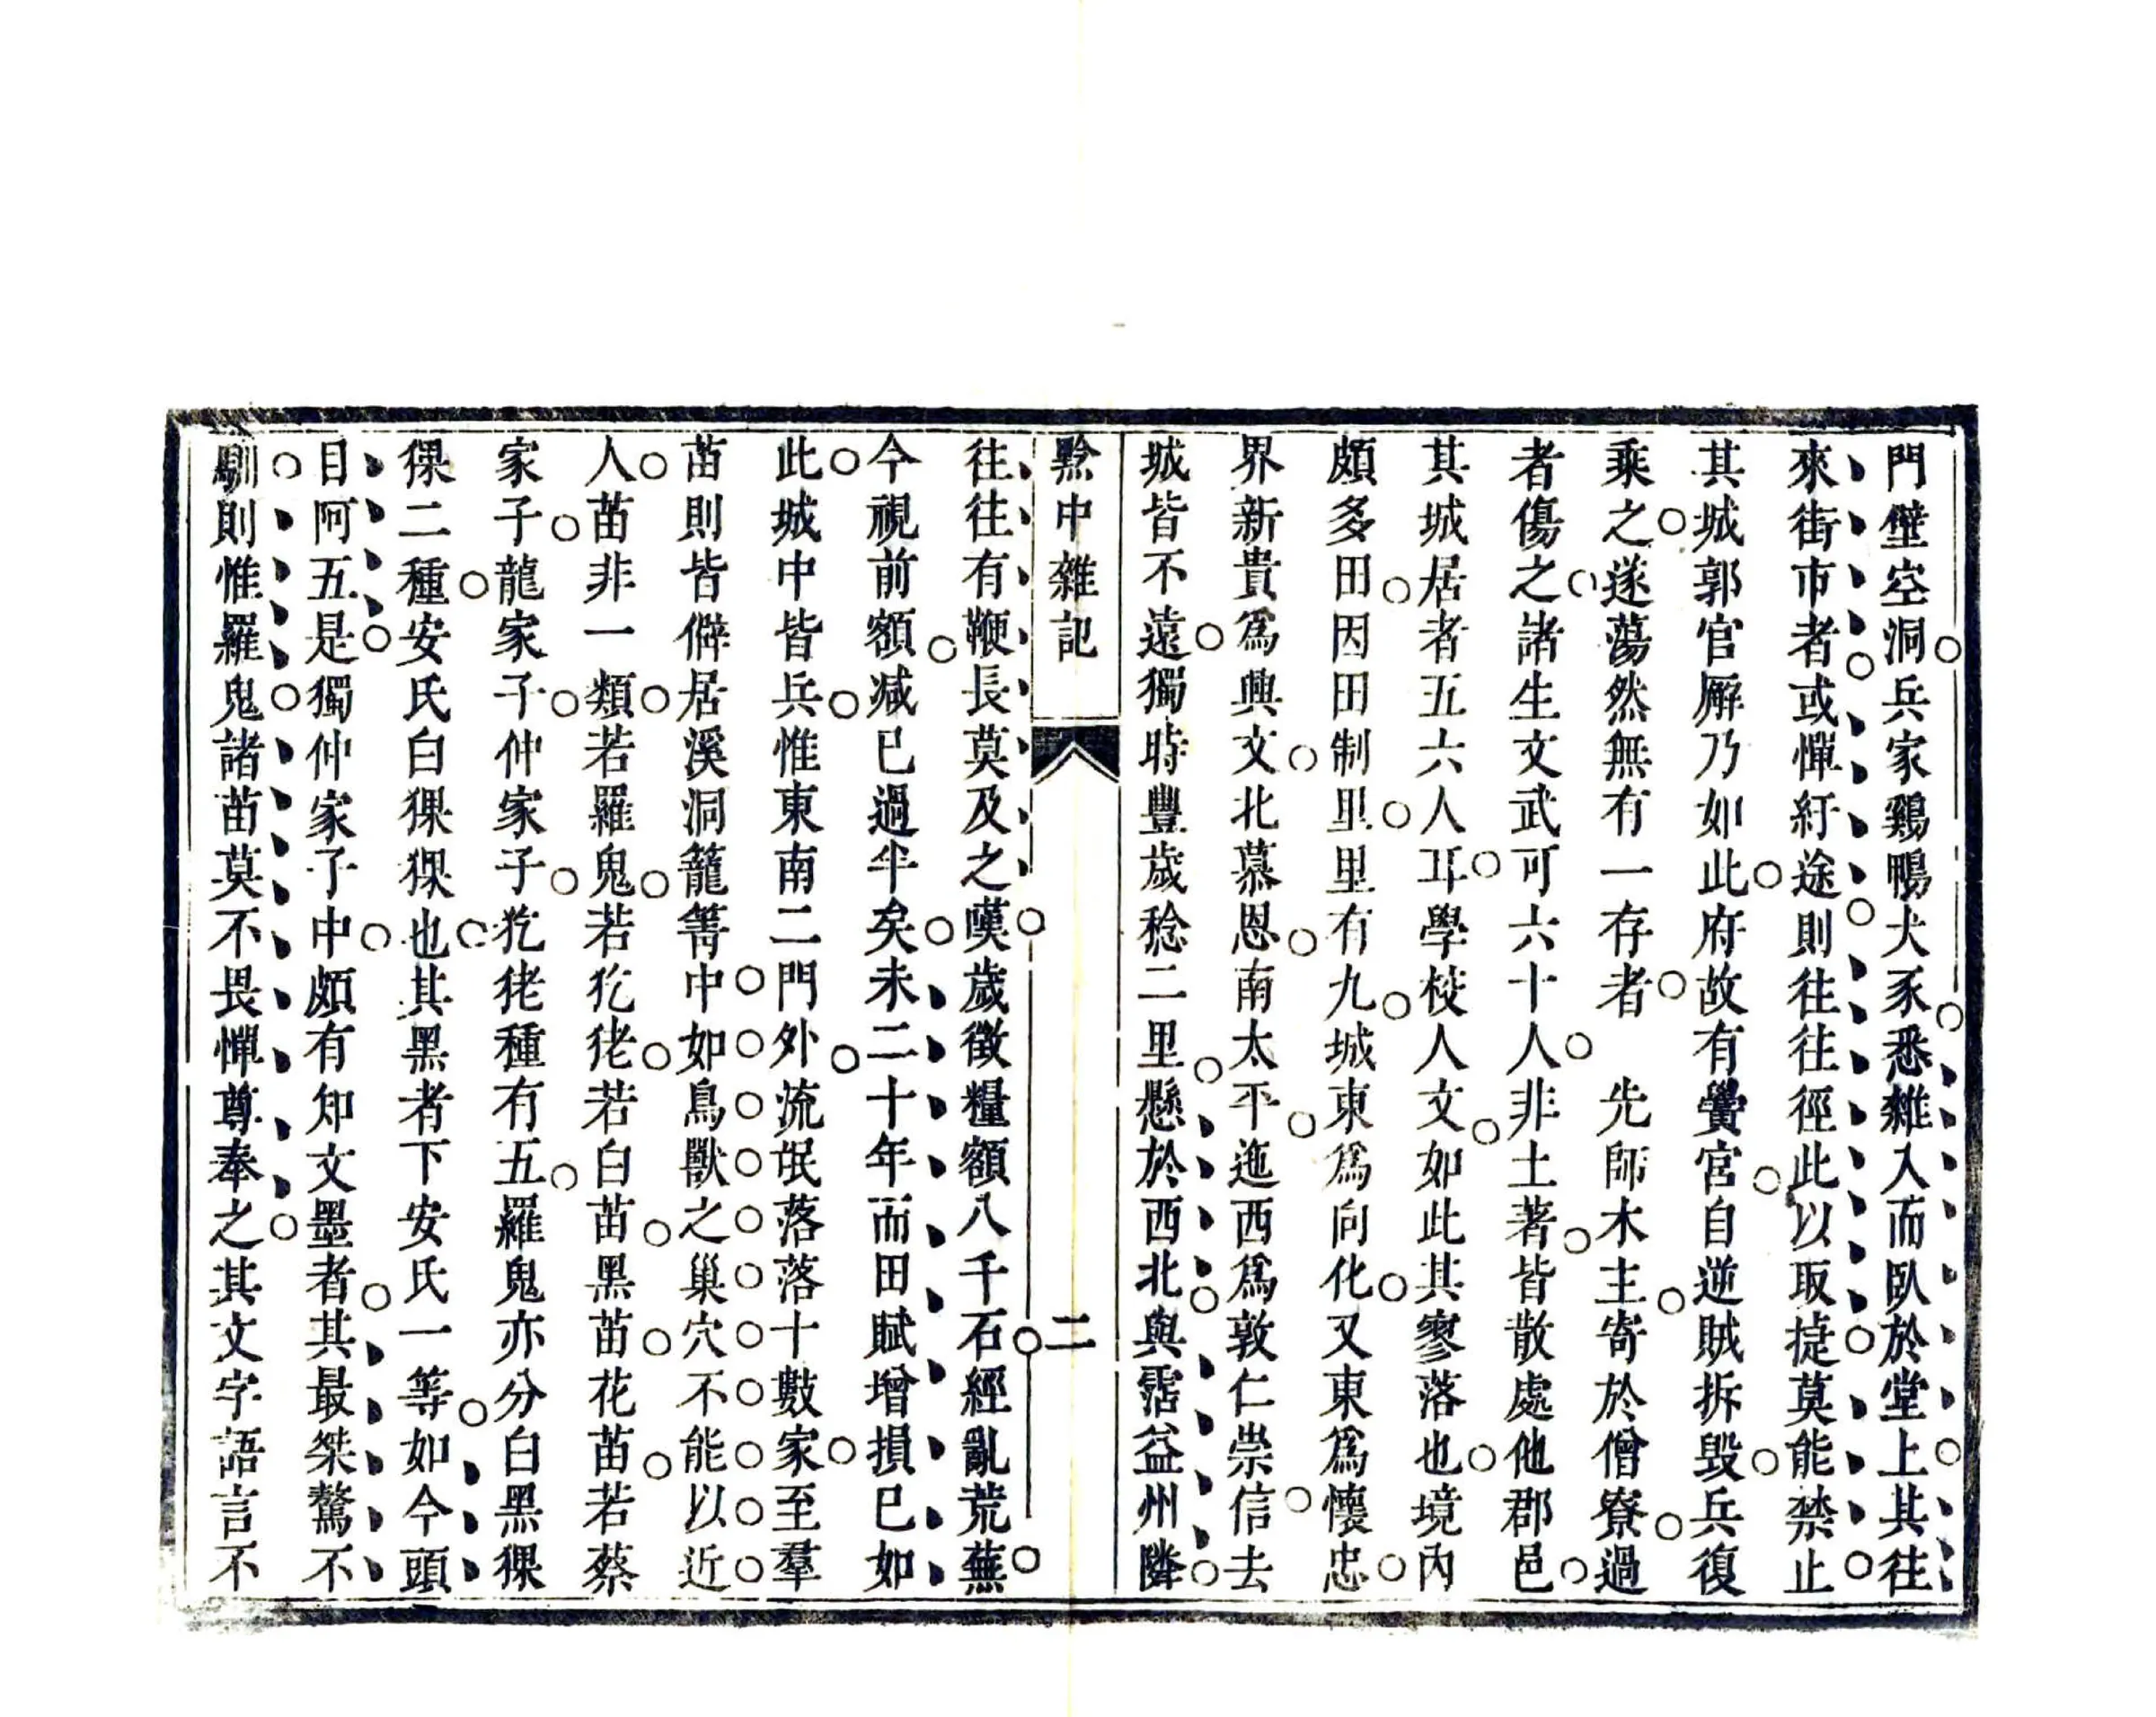 門壁空洞兵家鷄鴨犬豕悉雜入而臥於堂上其往
來街市者或憚紆途則往往徑此以取捷莫能禁止
其城郭官廨乃如此府故有黌宮自逆賊拆毀兵復
乘之遂蕩然無有一存者　先師木主寄於僧寮過
者傷之諸生文武可六十人非土著皆散處他郡邑
其城居者五六人耳學校人文如此其寥落也境內
頗多田因田制里里有九城東爲向化又東爲懷忠
界新貴爲興文北慕恩南太平迤西爲敦仁崇信去
城皆不遠獨時豐歲稔二里懸於西北與霑益州隣
黔中雜記
二
往往有鞭長莫及之嘆歲徵糧額八千石經亂荒蕪
今視前額減已過半矣未二十年而田賦增損已如
此城中皆兵惟東南二門外流氓落落十數家至羣
苗則皆僻居溪洞籠箐中如鳥獸之巢穴不能以近
人苗非一類若羅鬼若犵狫若白苗黑苗花苗若蔡
家子龍家子仲家子犵狫種有五羅鬼亦分白黑猓
猓二種安氏白猓猓也其黑者下安氏一等如今頭
目阿五是獨仲家子中頗有知文墨者其最桀驁不
馴則惟羅鬼諸苗莫不畏憚尊奉之其文字語言不